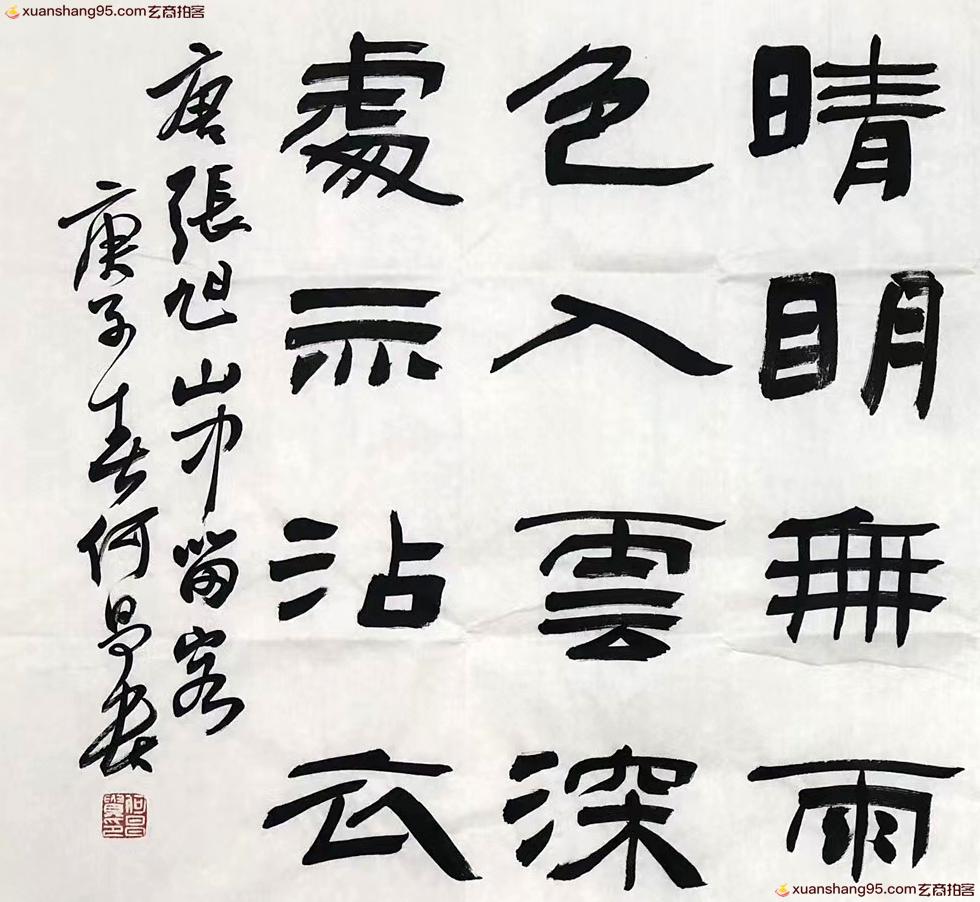 xuanshang95.com玄商拍客
晴眀無雨
色入雲深
處亦沾衣
唐張旭山中畱客
庚子春何昌
xuanshang95.com玄商拍客